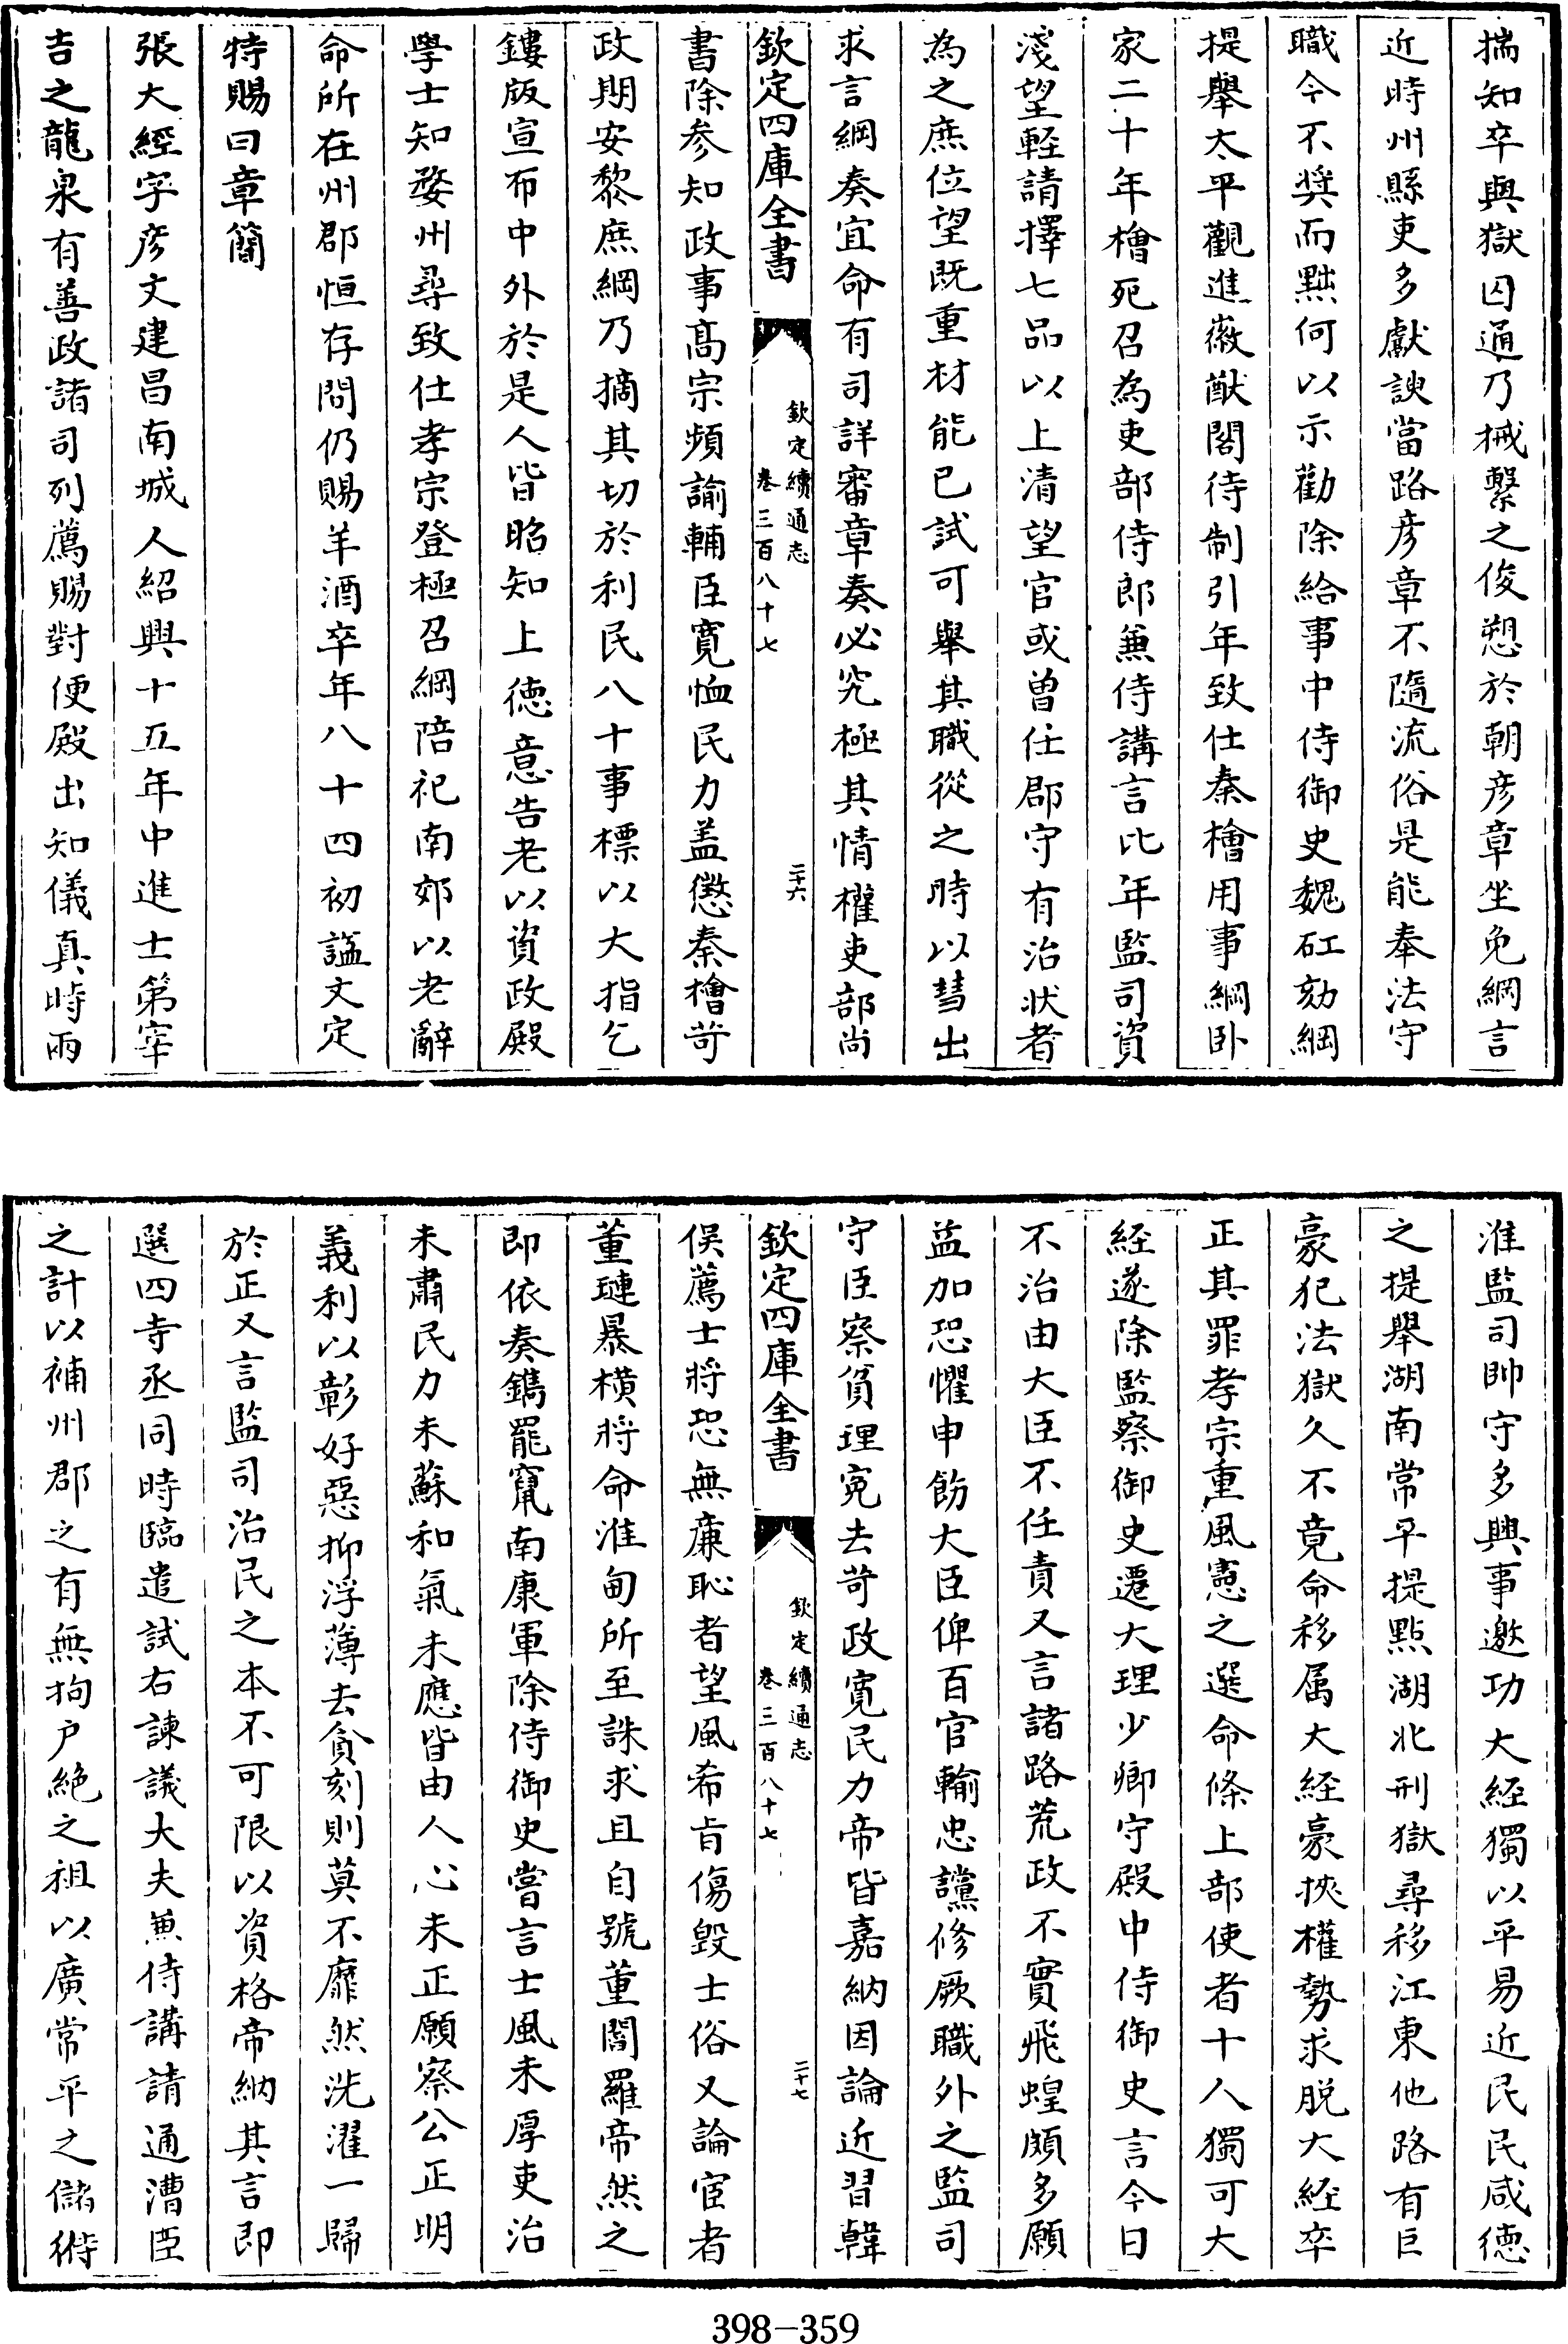 揣知卒與獄囚通乃械繫之俊愬於朝彦章坐免綱言
近時州縣吏多獻諛當路彦章不隨流俗是能奉法守
職今不奨而黜何以示勸除給事中侍御史魏矼劾綱
提舉太平觀進徽猷閣待制引年致仕秦檜用事綱卧
家二十年檜死召為吏部侍郎兼侍講言比年監司資
淺望輕請擇七品以上清望官或曽任郡守有治狀者
為之庶位望既重材能已試可舉其職從之時以彗出
求言綱奏宜命有司詳審章奏必究極其情權吏部尚
欽定四庫全書
欽定續通志
卷三百八十七
二十六
書除參知政事髙宗頻諭輔臣寛恤民力盖懲秦檜苛
政期安黎庶綱乃摘其切於利民八十事標以大指乞
鏤版宣布中外於是人皆昭知上徳意告老以資政殿
學士知婺州尋致仕孝宗登極召綱陪祀南郊以老辭
命所在州郡恒存問仍賜羊酒卒年八十四初諡文定
特賜曰章簡
張大經字彦文建昌南城人紹興十五年中進士第宰
吉之龍泉有善政諸司列薦賜對便殿出知儀真時兩
淮監司帥守多興事邀功大經獨以平易近民民咸徳
之提舉湖南常平提㸃湖北刑獄尋移江東他路有巨
豪犯法獄久不竟命移属大經豪挾權勢求脱大經卒
正其罪孝宗重風憲之選命條上部使者十人獨可大
經遂除監察御史遷大理少卿守殿中侍御史言今日
不治由大臣不任責又言諸路荒政不實飛蝗頗多願
益加恐懼申飭大臣俾百官輸忠讜修厥職外之監司
守臣察貧理寃去苛政寛民力帝皆嘉納因論近習韓
欽定四庫全書
欽定續通志
卷三百八十七
二十七
俣薦士將恐無亷恥者望風希㫖傷毁士俗又論宦者
董璉暴橫將命淮甸所至誅求且自號董閻羅帝然之
即依奏鐫罷竄南康軍除侍御史嘗言士風未厚吏治
未肅民力未蘇和氣未應皆由人心未正願察公正明
義利以彰好惡抑浮薄去貪刻則莫不靡然洗濯一歸
於正又言監司治民之本不可限以資格帝納其言即
選四寺丞同時臨遣試右諫議大夫兼侍講請通漕臣
之計以補州郡之有無拘户絶之租以廣常平之儲㣲
398-359